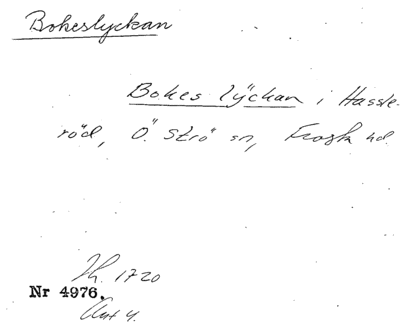 Bokeslyckan
Bokes lÿckan i Hassle-
röd, Ö. Strö sn, Frosta hd.
Jb. 1720
Nr 4976.
Ant 4.